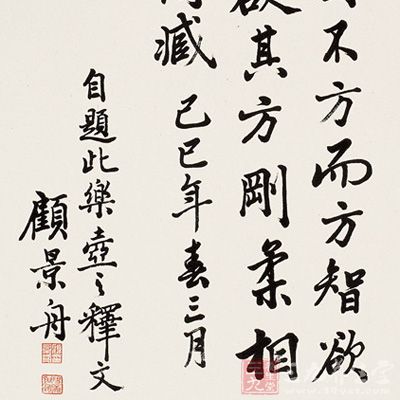 不方而方智欲
欲其方剛柔相
臧己巳年春三月
自題此樂壺之釋文
顧景舟